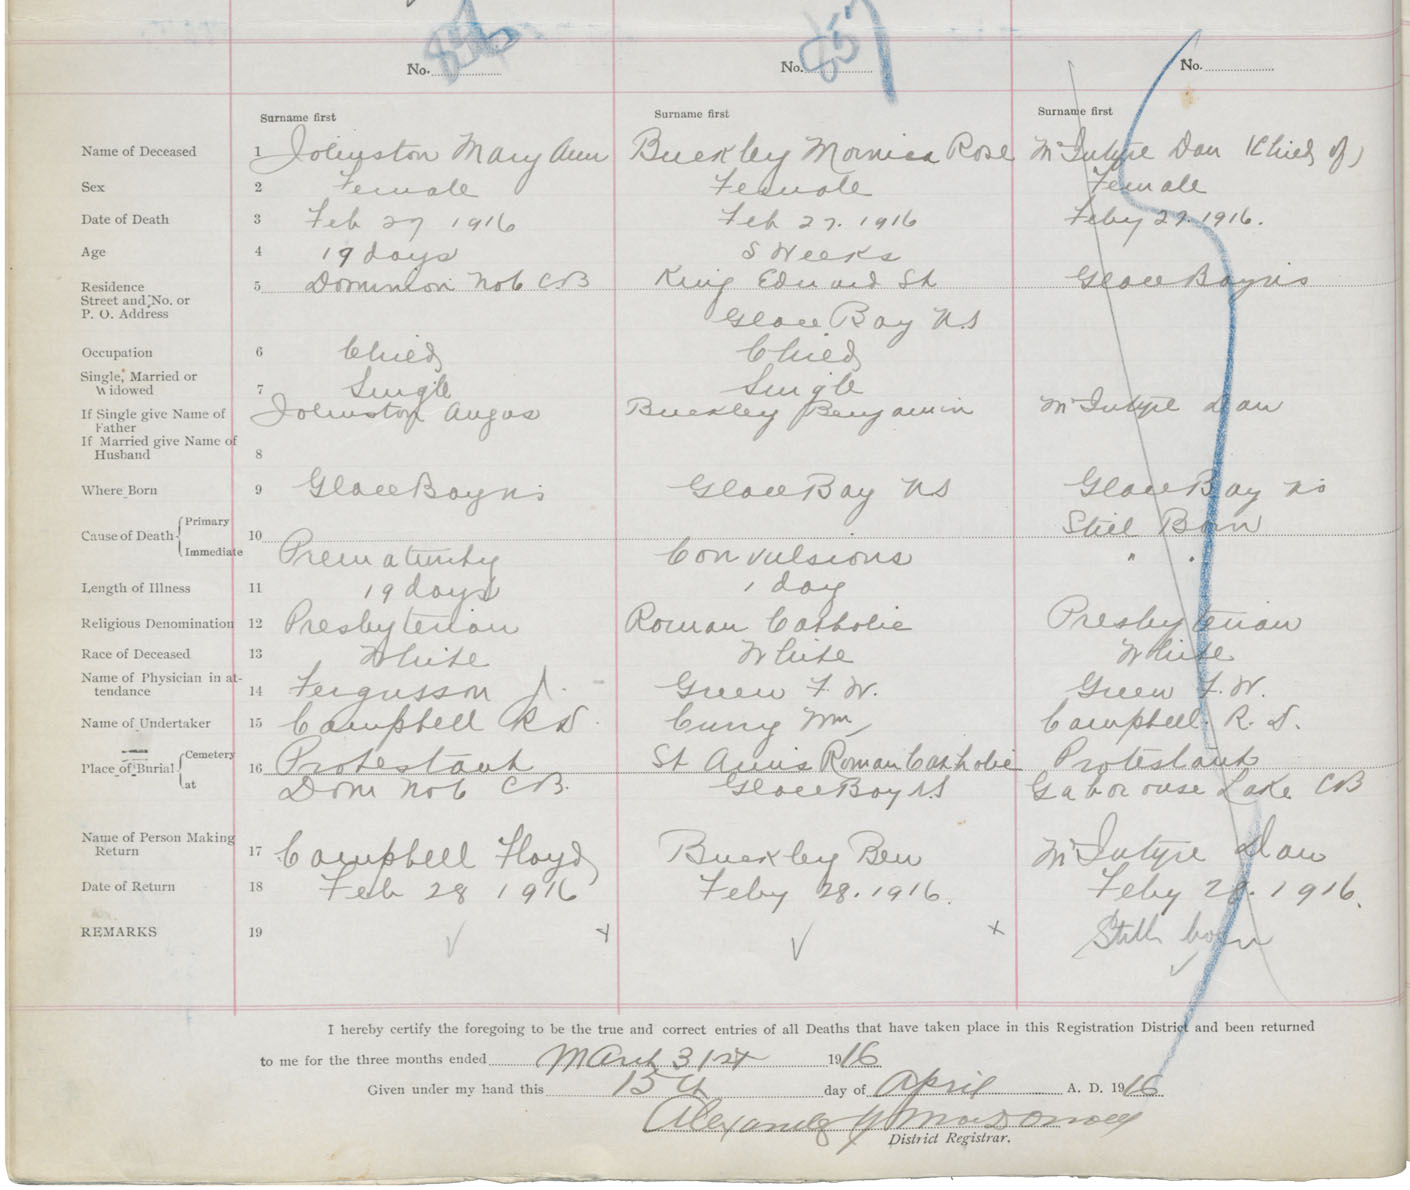 No. 856 No. 857 No.
Surname first Surname first Surname first
Name of Deceased 1 Johnston Mary Ann Buckley Monica Rose McIntyre Dan (Child of)
Sex 2 Female Female Female
Date of Death 3 Feb 27 1916 Feb 27. 1916 Feby 27. 1916.
Age 4 19 days 5 Weeks
Residence 5 Dominion No 6 CB King Edward St Glace Bay NS
Street and No. or
P. O. Address Glace Bay N.S
Occupation 6 Child Child
Single, Married or
Widowed 7 Single Single
If Single give Name of Johnston Angus Buckley Benjamin McIntyre Dan
Father
If Married give Name of
Husband 8
Where Born 9 Glace Bay NS Glace Bay NS Glace Bay NS
Cause of Death Primary 10 Still Born
Immediate Prematurity Convulsions " "
Length of Illness 11 19 days 1 day
Religious Denomination 12 Presbyterian Roman Catholic Presbyterian
Race of Deceased 13 White White White
Name of Physician in at-
tendance 14 Fergusson J. Green F. W. Green F. W.
Name of Undertaker 15 Campbell R D. Curry Wm Campbell. R. D.
Place of Burial Cemetery 16 Protestant St Anns Roman Catholic Protestant
at Dom No 6 CB. Glace Bay N.S Gabarouse Lake CB
Name of Person Making
Return 17 Campbell Floyd Buckley Ben McIntyre Dan
Date of Return 18 Feb 28 1916 Feby 28. 1916. Feby 28. 1916.
REMARKS 19 Still born
I hereby certify the foregoing to be the true and correct entries of all Deaths that have taken place in this Registration District and been returned
to me for the three months ended March 31st 1916
Given under my hand this 15th day of April A. D. 1916
Alexander MacDonald
District Registrar.